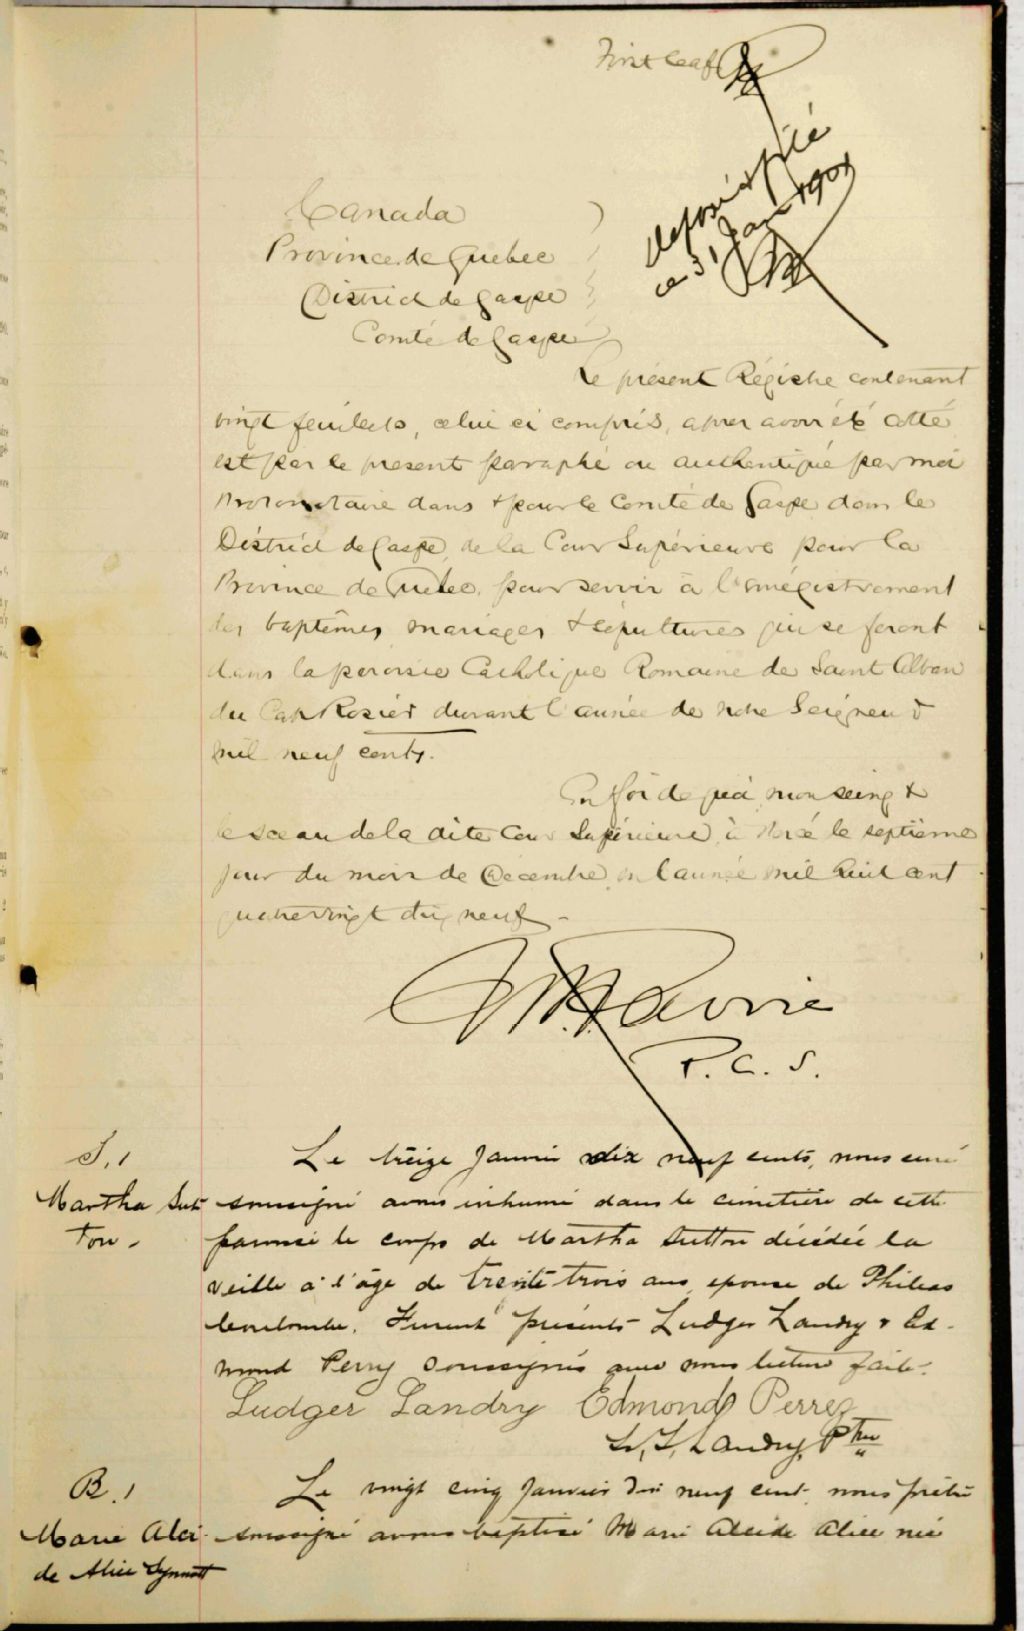 First leaf
déposé & filé
ce 31 Jan 1901
Canada
Province de Quebec
District de Gaspe
Comté de Gaspe
Le présent Régistre contenant
vingt feuillets, celui ci compris, apres avoir été cotté
est par le present paraphé ou authentiqué par moi
Protonotaire dans & pour le Comté de Gaspe dans le
District de Gaspe, de la Cour Supérieure pour la
Province de Quebec, pour servir à l'enrégistrement
des baptêmes mariages & sépultures qui se feront
dans la paroisse Catholique Romaine de Saint Alban
du Cap Rozier durant l'année de notre Seigneur
mil neuf cents.
En foi de quoi mon seing &
le sceau de la dite Cour Supérieure, à Percé le septième
jour du mois de Décembre en l'année mil huit cent
quatrevingt dix neuf -
P. C. S.
S. 1
Martha Sut
ton -
Le treize Janvier dix neuf cents, nous curé
soussigné avons inhumé dans le cimetière de cette
paroisse le corps de Martha Sutton décédée la
veille à l'âge de trente trois ans, epouse de Phileas
Coulombe. Furent présents Ludger Landry & Ed-
mond Perry soussignés avec nous lecture faite.
Ludger Landry Edmond Perrey
Landry, Ptre
B. 1
Marie Alci
de Alice Synnott
Le vingt cinq Janvier dix neuf cent, nous prêtre
soussigné avons baptisé Marie Alcide Alice née